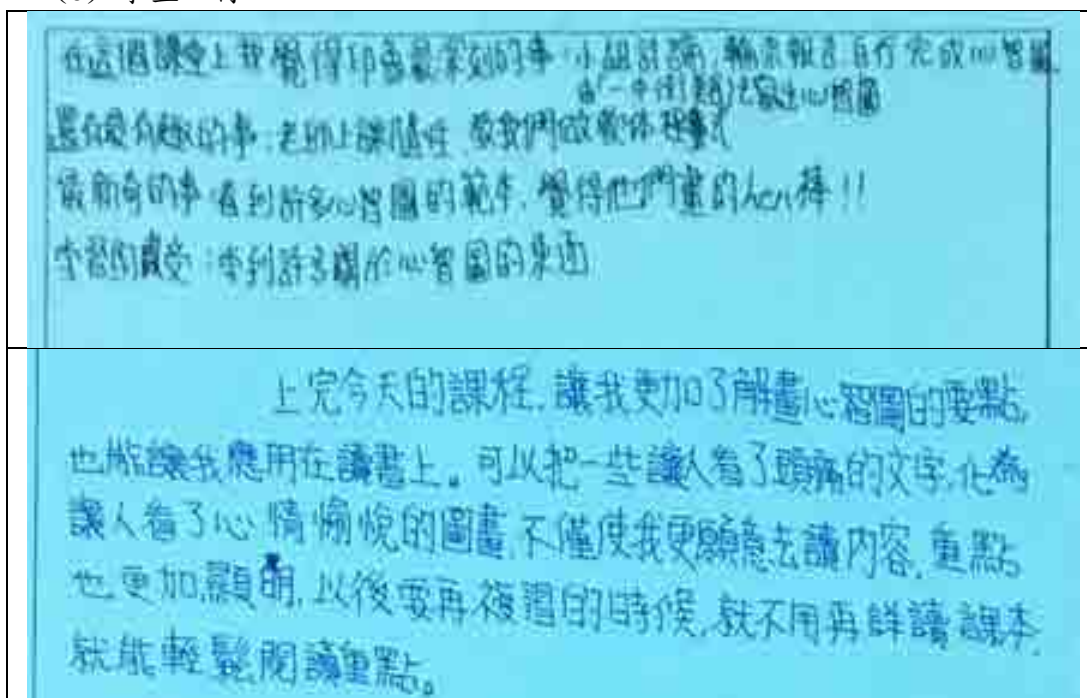 在這個課堂上我覺得印象最深刻的事:小組討論,輪流報告,自行完成心智圖,
由「一中街」
出心智圖
還有愛有趣的事:老師上課 教我們做軟体程式
最新奇的事:看到許多心智圖的範本,覺得他們畫的 棒!!
學習的感受:學到許多關於心智圖的東西
上完今天的課程,讓我更加了解畫心智圖的要點,
也能讓我應用在讀書上。可以把一些讓人看了頭痛的文字,化為
讓人看了心情愉悅的圖畫,不僅使我更願意去讀內容,重點
也更加顯明,以後要再複習的時候,就不用再詳讀課本,
就能輕鬆閱讀重點。